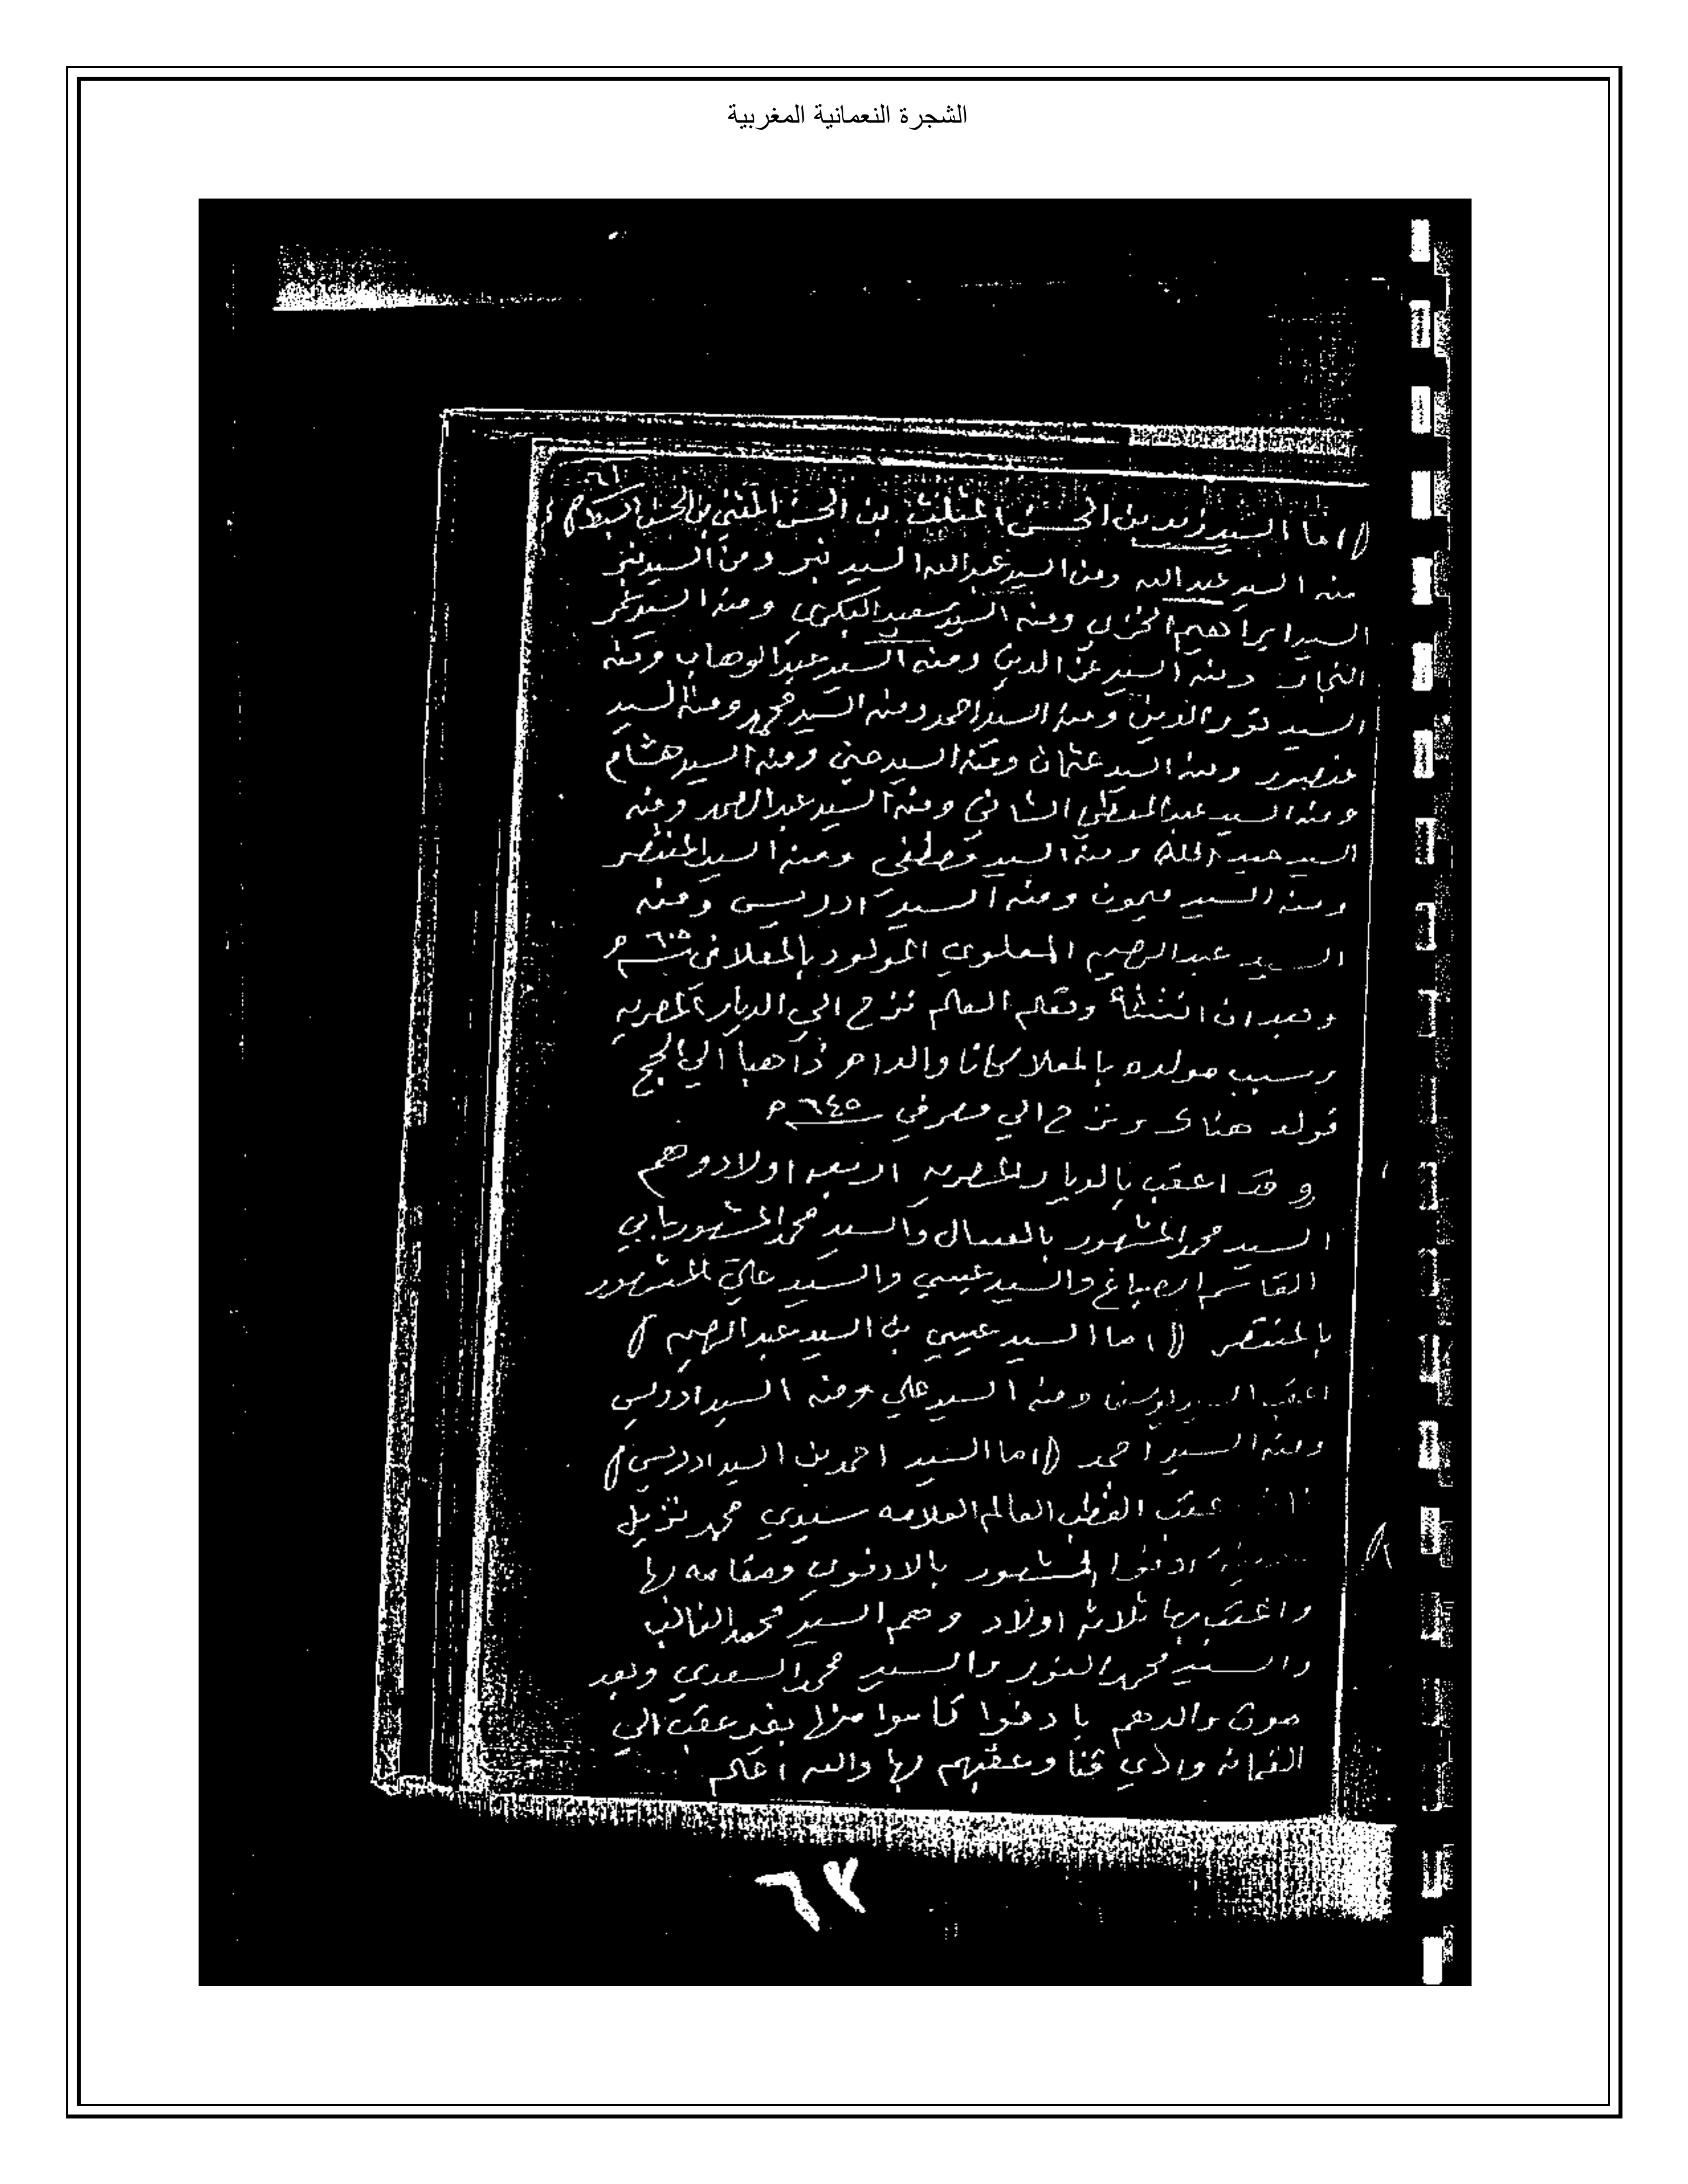 الشجرة النعمانية المغربية
٦١
(اما السيد زيد بن الحسن المثلث بن الحسن المثنى بن الحسن السبط)
منه السيد عبدالله ومن السيد عبدالله السيد ومن السيد
السيد ابراهيم ومنه السيد سعيد البكرى ومنه السيد
ومنه السيد عز الدين ومنه السيد عبدالوهاب ومنه
السيد نور الدين ومنه السيد احمد ومنه السيد محمد ومنه السيد
منصور ومنه السيد عثمان ومنه السيد ومنه السيد هشام
ومنه السيد عبد المعطى الثانى ومنه السيد عبد الصمد ومنه
السيد الله ومنه السيد مصطفى ومنه السيد المنتصر
ومنه السيد ميمون ومنه السيد ادريس ومنه
السيد عبدالرحيم المعلوي المولود بالمعلا فى ٦٠٥ م
وبعد ان انتشأ وتعلم العلم نزح الي الديار المصريه
وسبب مولده بالمعلا كانا والداه ذاهبا الي الحج
فولد هناك ونزح الي مصر في ٦٤٥ م
وقد اعقب بالديار المصريه اربعه اولاد وهم
السيد محمد المشهور بالعسال والسيد محمد المشهور بابي
القاسم الصباغ والسيد عيسي والسيد علي المشهور
بالمنتصر (اما السيد عيسي بن السيد عبدالرحيم)
اعقب السيد ومنه السيد علي ومنه السيد ادريس
ومنه السيد احمد (اما السيد احمد بن السيد ادريس)
عقب القطب العالم العلامه سيدي محمد نزيل
ادفوا المشهور بالادفوي ومقامه بها
واعقب بها ثلاثه اولاد وهم السيد محمد
والسيد محمد النور والسيد محمد السعدي وبعد
موت والدهم بادفوا عقب الي
وادي قنا وعقبهم بها والله اعلم
٦٢